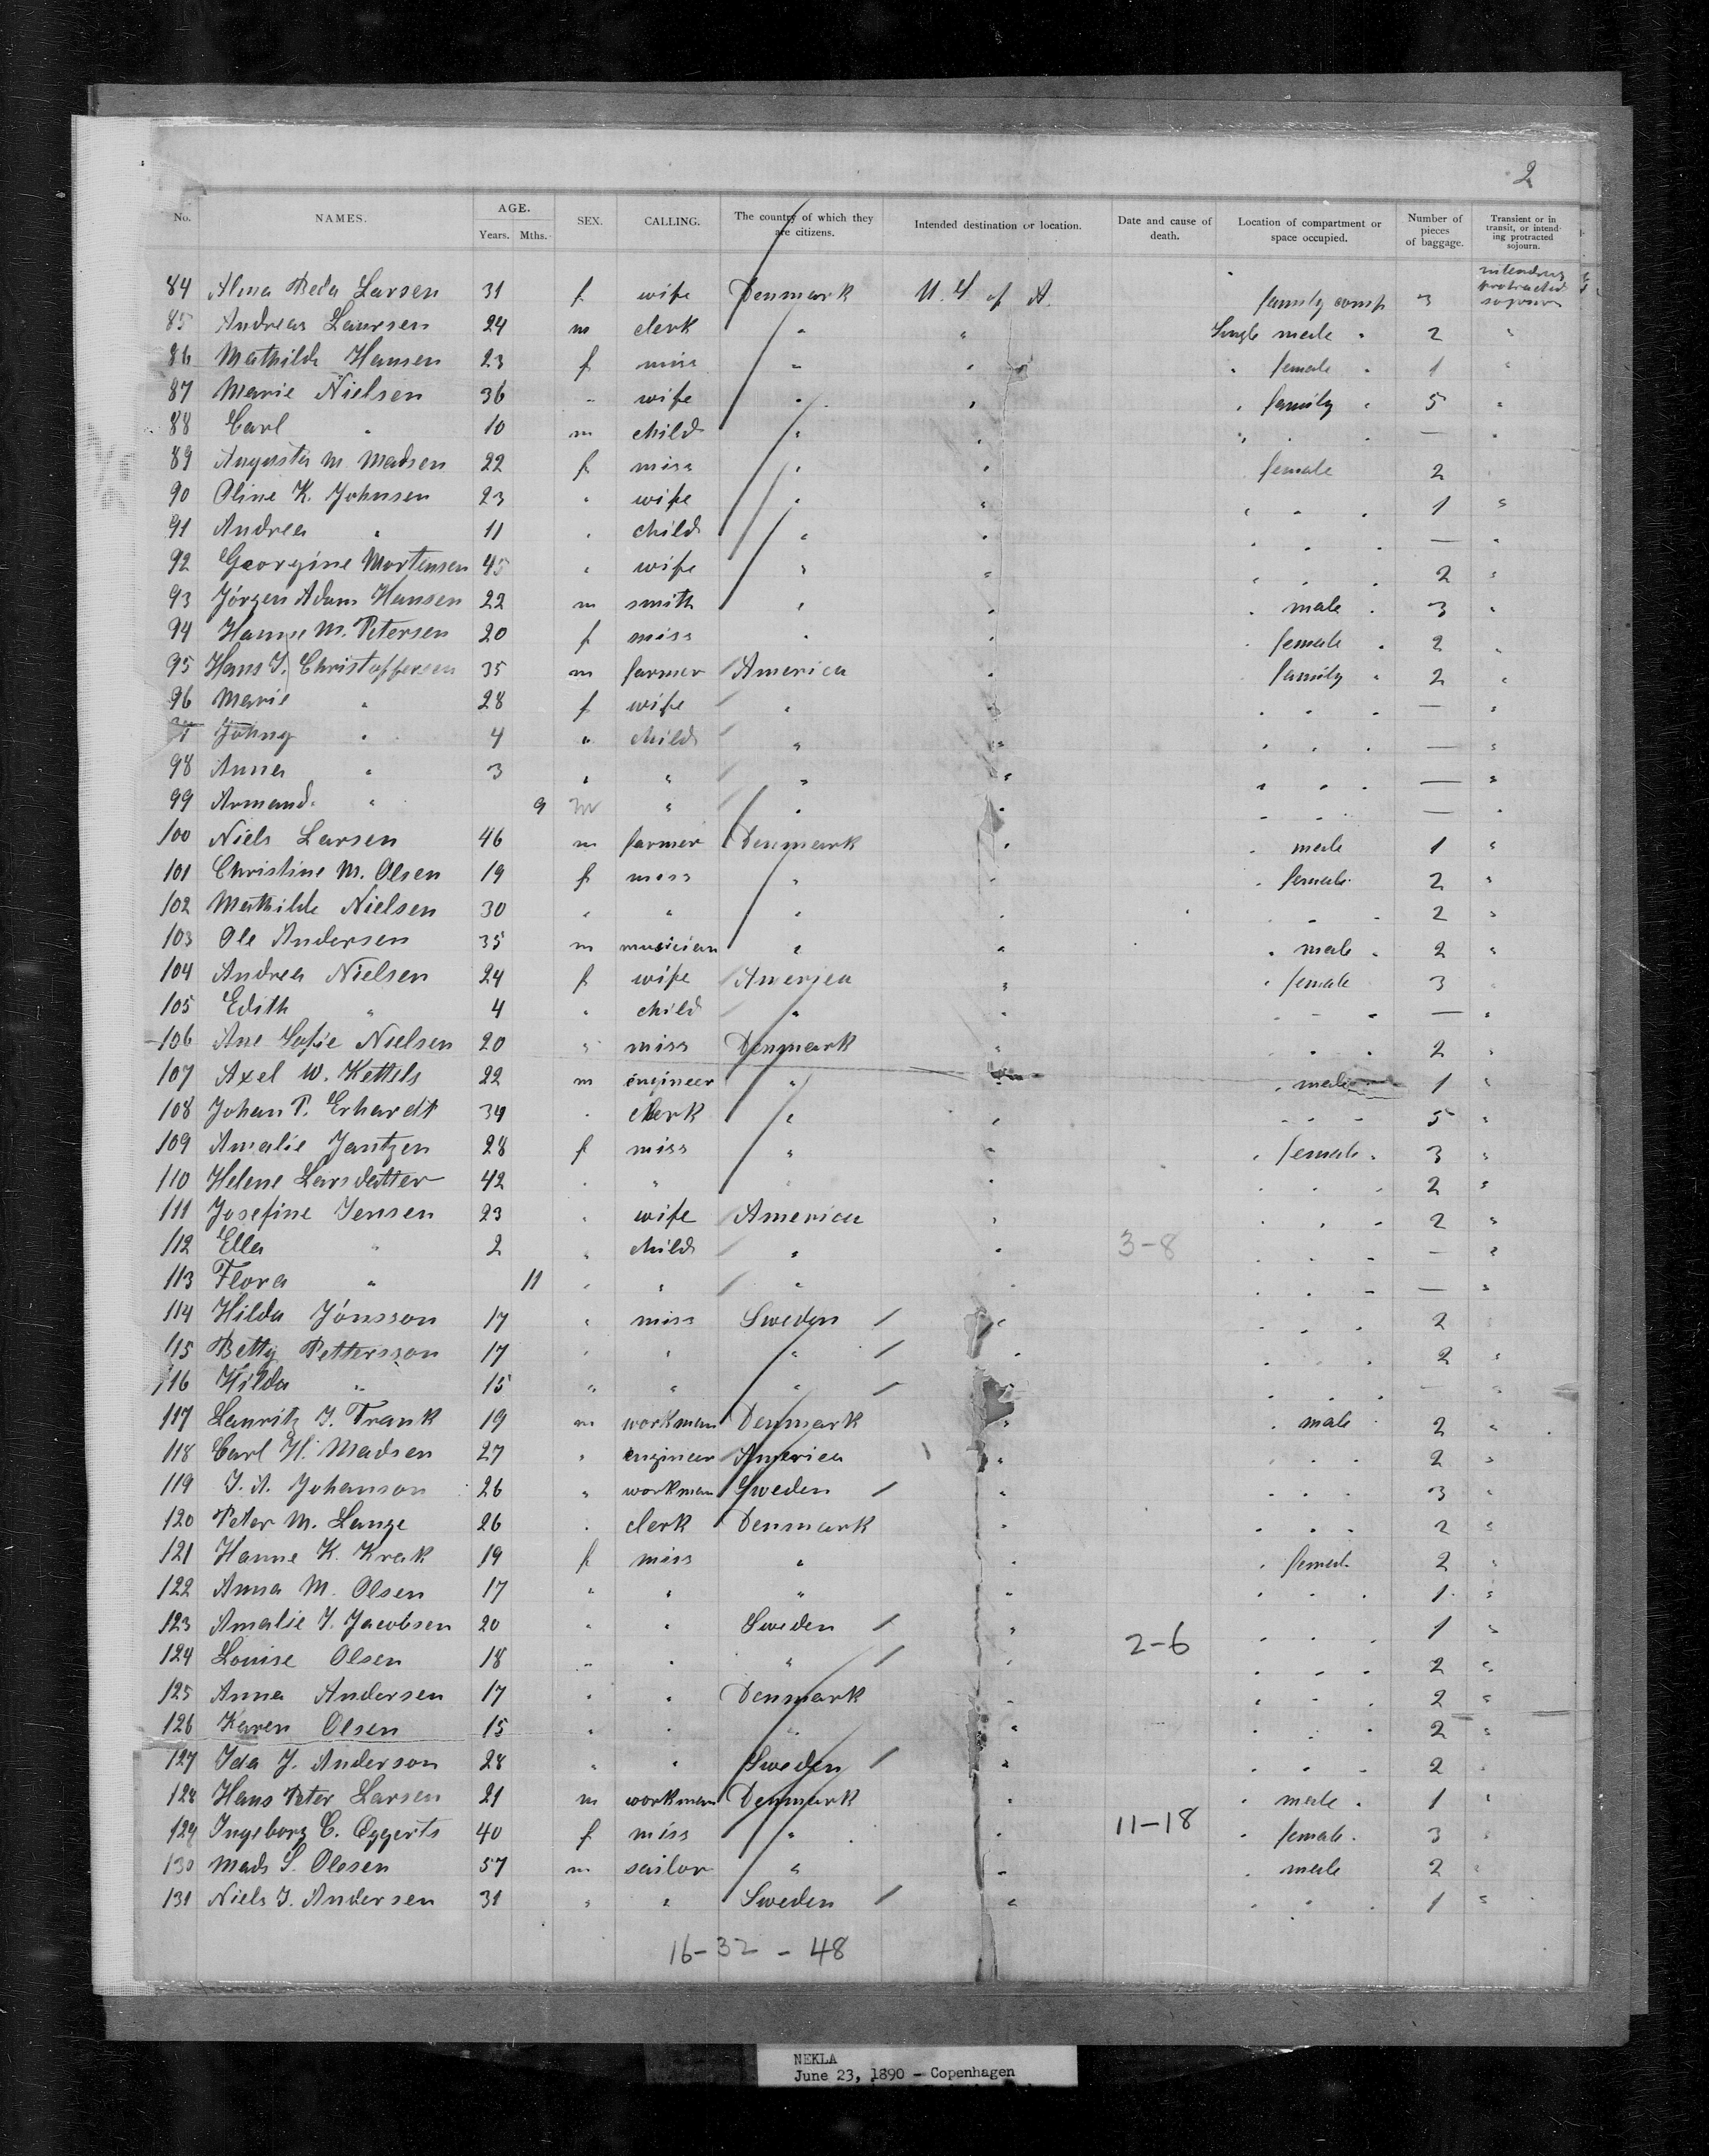 2
No. NAMES. AGE. Years. Mths. SEX. CALLING. The country of which they are citizens. Intended destination or location. Date and cause of death. Location of compartment or space occupied. Number of pieces of baggage. Transient or in transit, or intending protracted sojourn.
84 Alma Beda Larsen 31 f wife Denmark U. S. of A. family comp 3 intending protracted sojourn
85 Andreas Laursen 24 m clerk " " Single male " 2 "
86 Mathilde Hansen 23 f miss " " " female " 1 "
87 Marie Nielsen 36 " wife " " " family " 5 "
88 Carl " 10 m child " " " " " — "
89 Augusta M. Madsen 22 f miss " " female 2 "
90 Oline K. Johnsen 23 " wife " " " " " 1 "
91 Andrea " 11 " child " " " " " — "
92 Georgine Mortensen 45 " wife " " " " " 2 "
93 Jörgen Adam Hansen 22 m smith " " " male " 3 "
94 Hanne M. Petersen 20 f miss " " " female " 2 "
95 Hans J. Christoffersen 35 m farmer America " family " 2 "
96 Marie " 28 f wife " " " " " — "
Johny " 4 " child " " " " " — "
98 Anna " 3 " " " " " " " — "
99 Armand " 9 m " " " " " — "
100 Niels Larsen 46 m farmer Denmark " " male 1 "
101 Christine M. Olsen 19 f miss " " " female 2 "
102 Mathilde Nielsen 30 " " " " " " " 2 "
103 Ole Andersen 35 m musician " " " male " 2 "
104 Andrea Nielsen 24 f wife America " " female 3 "
105 Edith " 4 " child " " " " " — "
106 Ane Sofie Nielsen 20 " miss Denmark " " " " 2 "
107 Axel W. Kettels 22 m engineer " " " male 1 "
108 Johan P. Erhardt 34 " clerk " " " " " 5 "
109 Amalie Jantzen 28 f miss " " " female " 3 "
110 Helene Larsdatter 42 " " " " " " " 2 "
111 Josefine Jensen 23 " wife America " " " " 2 "
112 Ella " 2 " child " " 3-8 " " " — "
113 Flora " 11 " " " " " " " — "
114 Hilda Jönsson 17 " miss Sweden / " " " " 2 "
115 Betty Pettersson 17 " " " / " " " " 2 "
116 Hilda " 15 " " " / " " " — "
117 Lauritz J. Frank 19 m workman Denmark " " male " 2 "
118 Carl H. Madsen 27 " engineer America " " " " 2 "
119 J. A. Johanson 26 " workman Sweden / " " " " 3 "
120 Peter M. Lange 26 " clerk Denmark " " " " 2 "
121 Hanne K. Krak 19 f miss " " " female 2 "
122 Anna M. Olsen 17 " " " " " " " 1 "
123 Amalie J. Jacobsen 20 " " Sweden / " 2-6 " " " 1 "
124 Louise Olsen 18 " " " / " " " " 2 "
125 Anna Andersen 17 " " Denmark " " " " 2 "
126 Karen Olsen 15 " " " " " " " 2 "
127 Ida J. Anderson 28 " " Sweden / " " " " 2 "
128 Hans Peter Larsen 21 m workman Denmark " " male " 1 "
129 Ingeborg C. Eggerts 40 f miss " " 11-18 " female " 3 "
130 Mads S. Olesen 57 m sailor " " " male 2 "
131 Niels J. Andersen 31 " " Sweden / " " " " 1 "
16-32 - 48
NEKLA
June 23, 1890 - Copenhagen